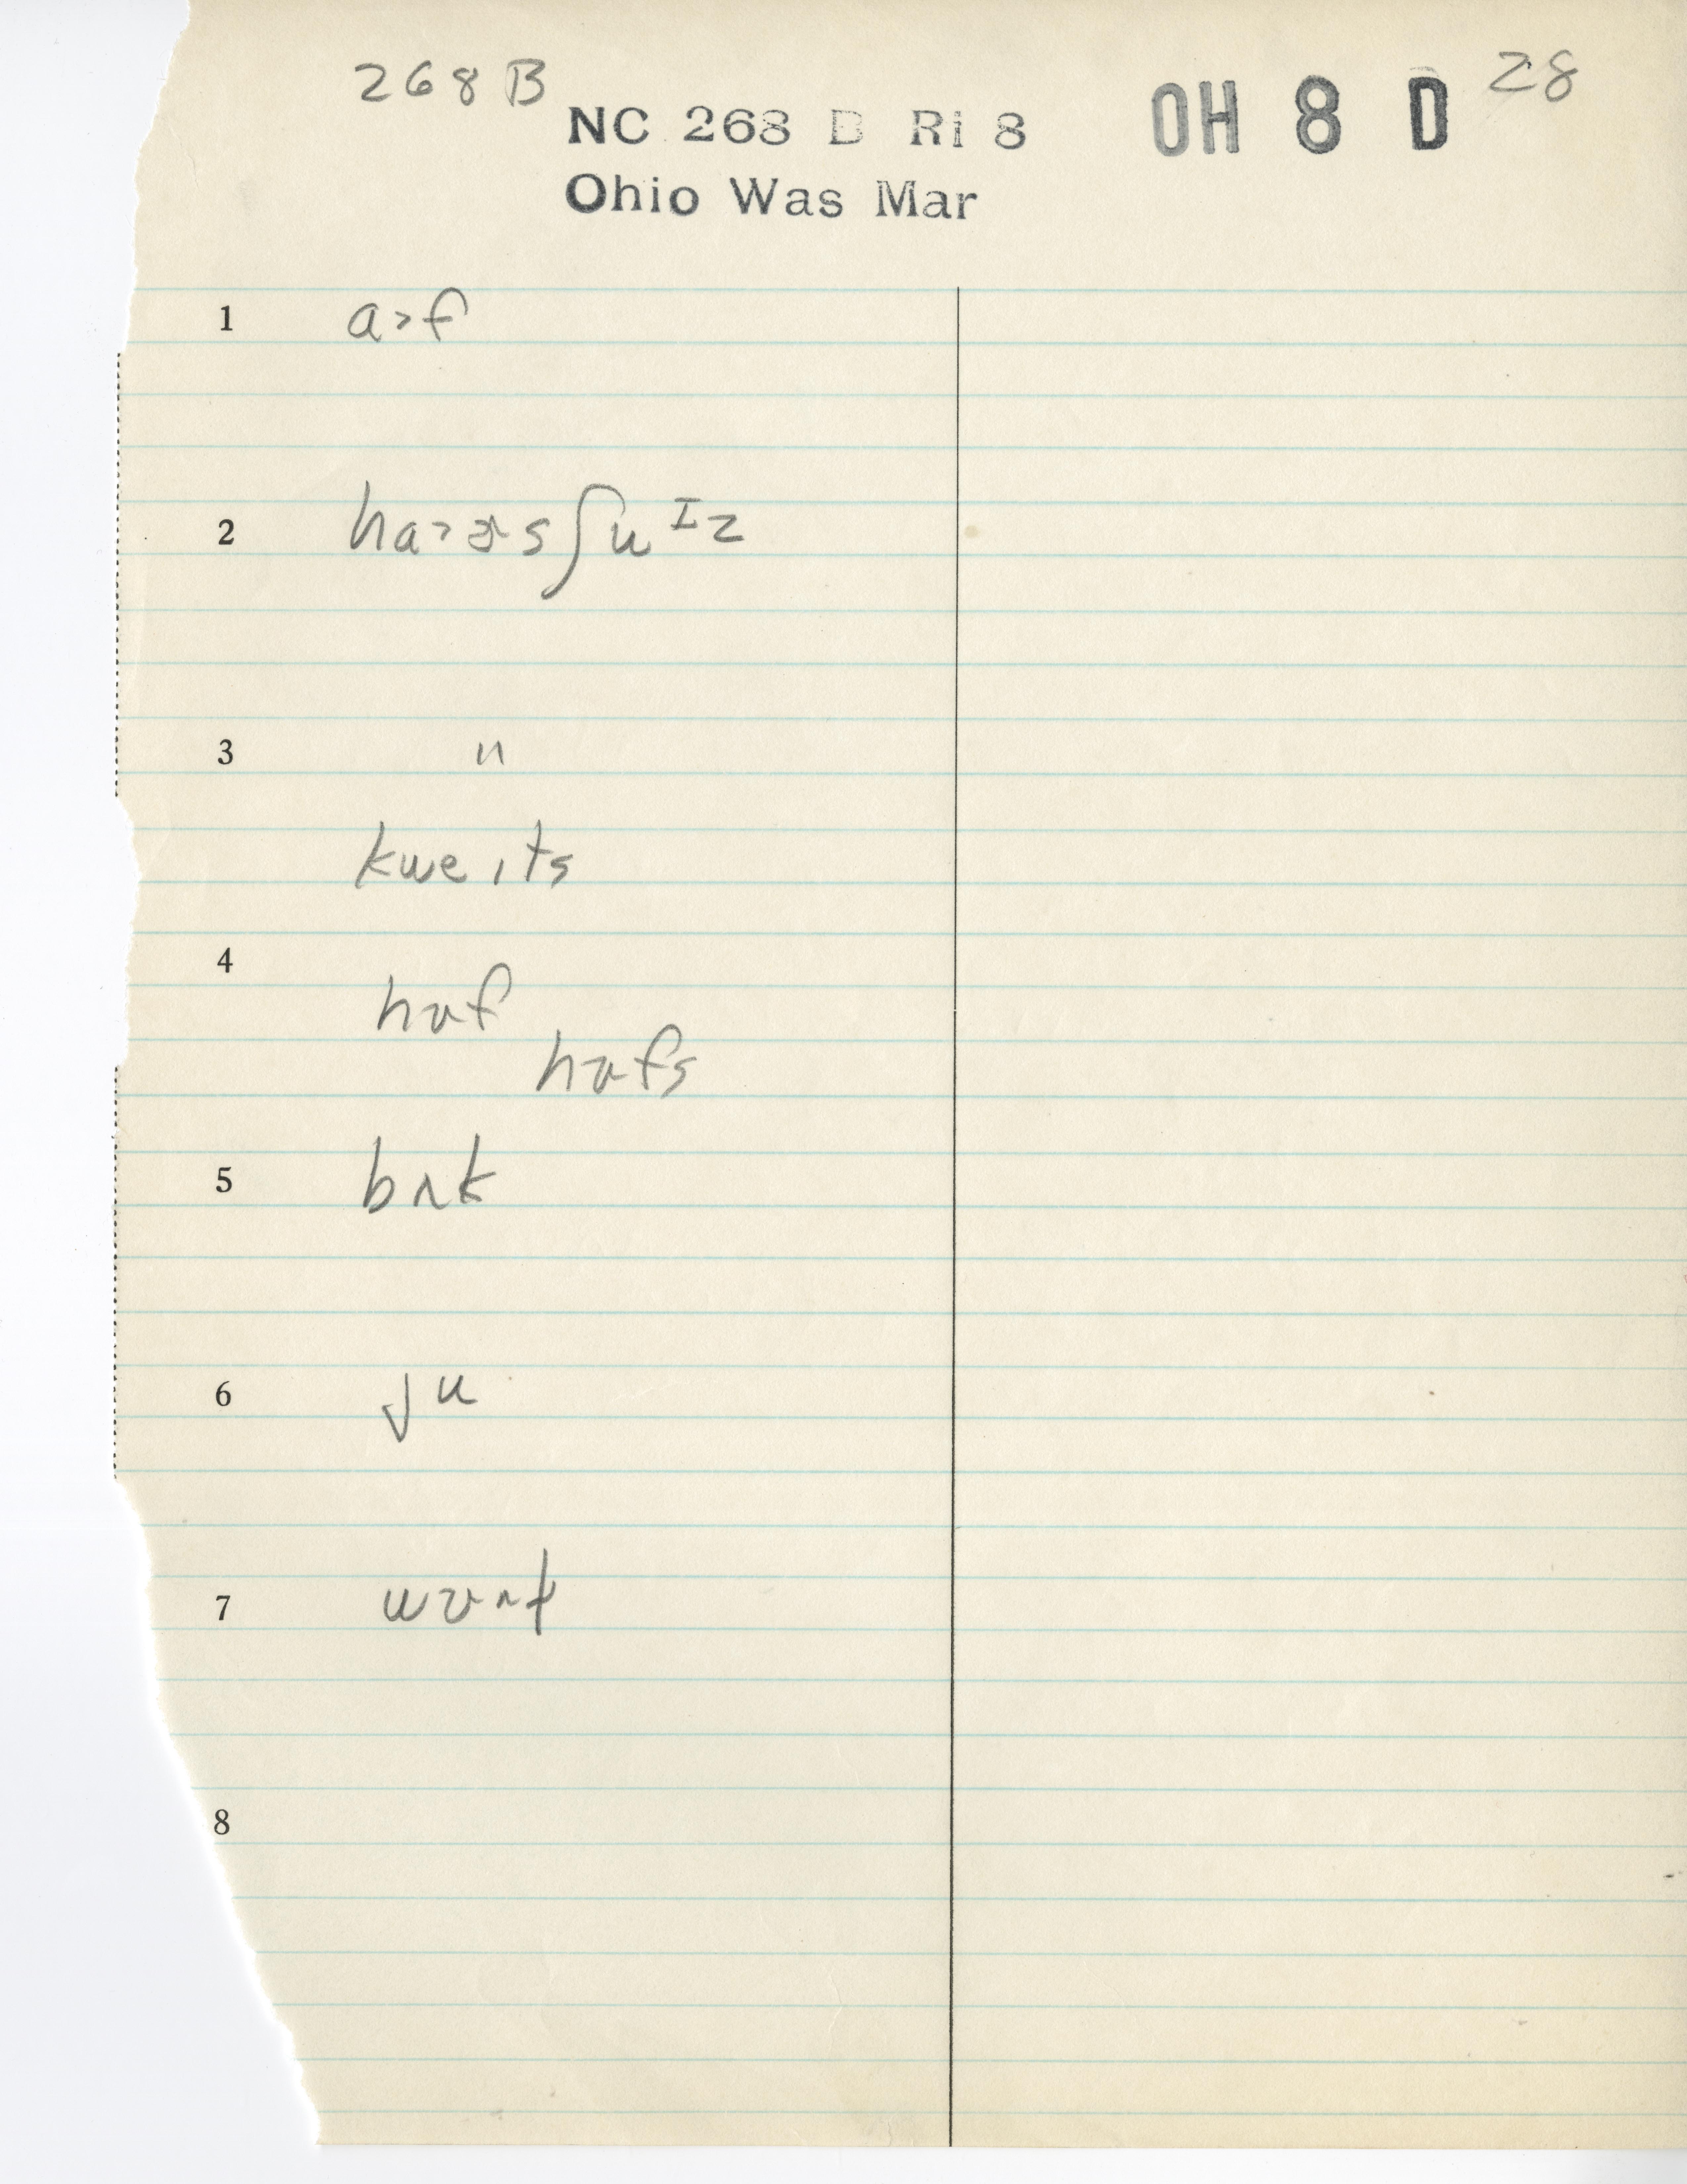 268B
NC 268 B Ri 8 OH 8 D 28
Ohio Was Mar
1 a˃f
2 ha˃ɚsʃuɪz
3 "
kwe˔ts
4
hɒf
hɒfs
5 bʌk
6 ju
7
8